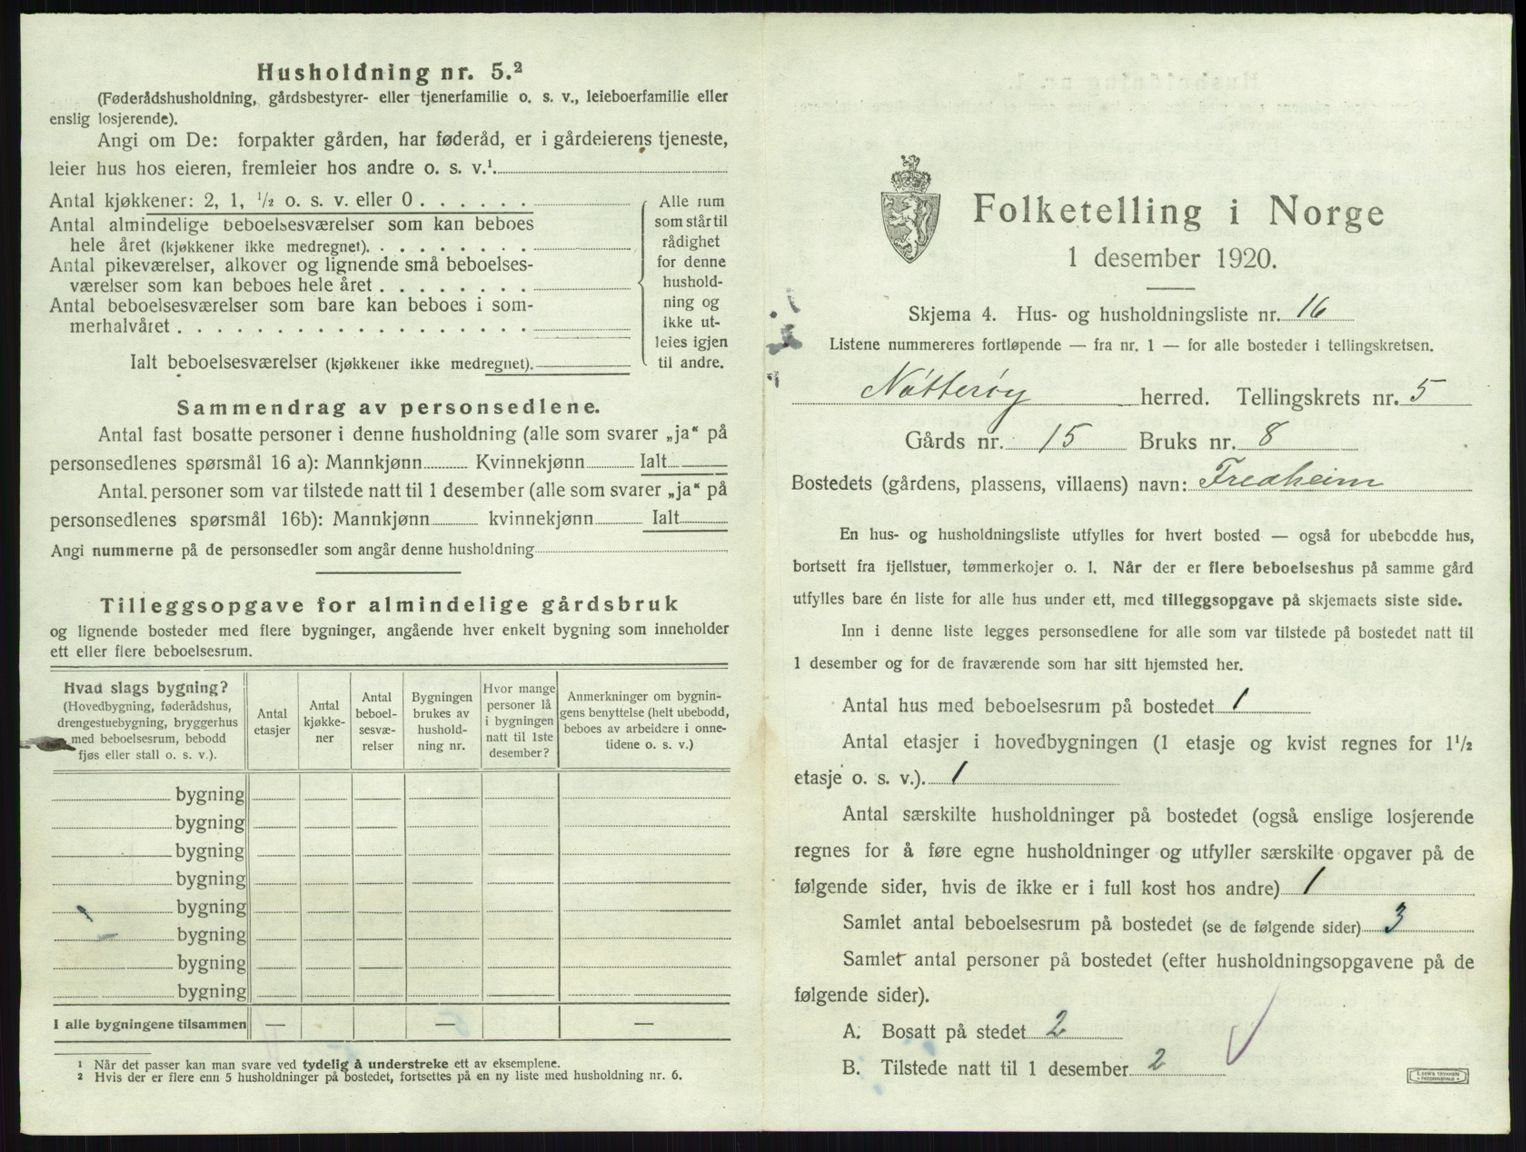 Husholdning nr. 5.²
(Føderådshusholdning, gårdsbestyrer- eller tjenerfamilie o. s. v., leieboerfamilie eller
enslig losjerende).
Angi om De: forpakter gården, har føderåd, er i gårdeierens tjeneste,
leier hus hos eieren, fremleier hos andre o. s. v.¹
Antal kjøkkener: 2, 1, ½ o. s. v. eller 0
Antal almindelige beboelsesværelser som kan beboes
hele året (kjøkkener ikke medregnet).
Antal pikeværelser, alkover og lignende små beboelses-
værelser som kan beboes hele året
Antal beboelsesværelser som bare kan beboes i som-
merhalvåret
Ialt beboelsesværelser (kjøkkener ikke medregnet).
Alle rum
som står til
rådighet
for denne
hushold-
ning og
ikke ut-
leies igjen
til andre.
Sammendrag av personsedlene.
Antal fast bosatte personer i denne husholdning (alle som svarer „ja“ på
personsedlenes spørsmål 16 a): Mannkjønn Kvinnekjønn Ialt
Antal personer som var tilstede natt til 1 desember (alle som svarer „ja“ på
personsedlenes spørsmål 16b): Mannkjønn kvinnekjønn Ialt
Angi nummerne på de personsedler som angår denne husholdning
Tilleggsopgave for almindelige gårdsbruk
og lignende bosteder med flere bygninger, angående hver enkelt bygning som inneholder
ett eller flere beboelsesrum.
Hvad slags bygning?
(Hovedbygning, føderådshus,
drengestuebygning, bryggerhus
med beboelsesrum, bebodd
fjøs eller stall o. s. v.).
Antal
etasjer
Antal
kjøkke-
ner
Antal
beboel-
sesvæ-
relser
Bygningen
brukes av
hushold-
ning nr.
Hvor mange
personer lå
i bygningen
natt til 1ste
desember?
Anmerkninger om bygnin-
gens benyttelse (helt ubebodd,
beboes av arbeidere i onne-
tidene o. s. v.)
bygning
bygning
bygning
bygning
bygning
bygning
bygning
bygning
I alle bygningene tilsammen — — —
¹ Når det passer kan man svare ved tydelig å understreke ett av eksemplene.
² Hvis der er flere enn 5 husholdninger på bostedet, fortsettes på en ny liste med husholdning nr. 6.
Folketelling i Norge
1 desember 1920.
Skjema 4. Hus- og husholdningsliste nr. 16
Listene nummereres fortløpende — fra nr. 1 — for alle bosteder i tellingskretsen.
Nøtterøy herred. Tellingskrets nr. 5
Gårds nr. 15 Bruks nr. 8
Bostedets (gårdens, plassens, villaens) navn: Fredheim
En hus- og husholdningsliste utfylles for hvert bosted — også for ubebodde hus,
bortsett fra fjellstuer, tømmerkojer o. l. Når der er flere beboelseshus på samme gård
utfylles bare én liste for alle hus under ett, med tilleggsopgave på skjemaets siste side.
Inn i denne liste legges personsedlene for alle som var tilstede på bostedet natt til
1 desember og for de fraværende som har sitt hjemsted her.
Antal hus med beboelsesrum på bostedet 1
Antal etasjer i hovedbygningen (1 etasje og kvist regnes for 1½
etasje o. s. v.). 1
Antal særskilte husholdninger på bostedet (også enslige losjerende
regnes for å føre egne husholdninger og utfyller særskilte opgaver på de
følgende sider, hvis de ikke er i full kost hos andre) 1
Samlet antal beboelsesrum på bostedet (se de følgende sider) 3
Samlet antal personer på bostedet (efter husholdningsopgavene på de
følgende sider).
A. Bosatt på stedet 2
B. Tilstede natt til 1 desember 2